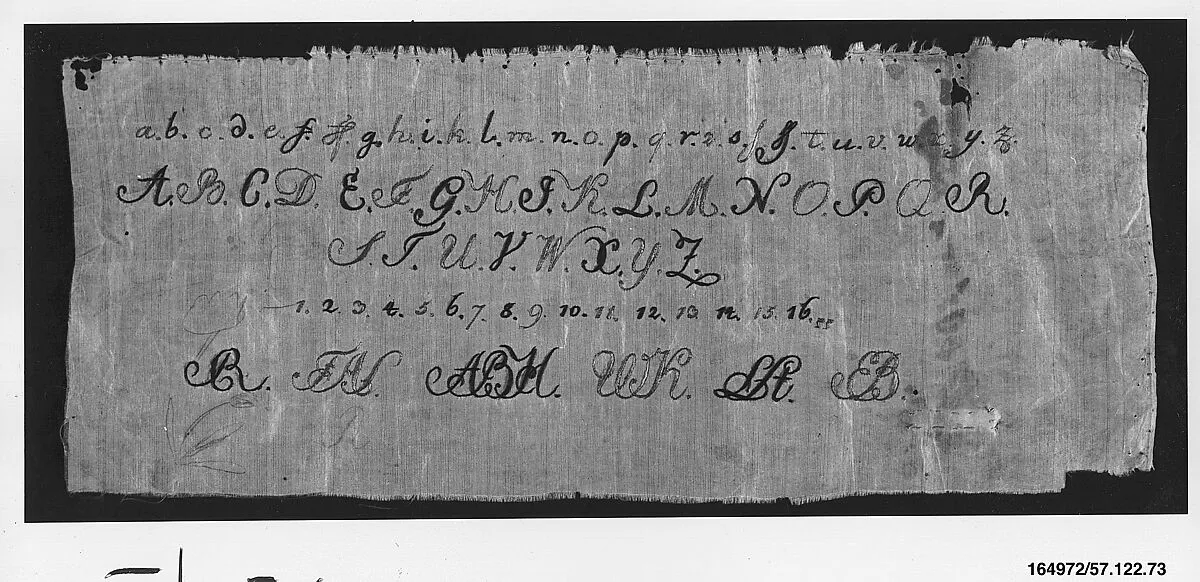 a. b. c. d. e. f. ff. g. h. i. k. l. m. n. o. p. q. r. z. s. ſ. ſſ. t. u. v. w. x. y. z.
A. B. C. D. E. F. G. H. I. K. L. M. N. O. P. Q. R.
S. T. U. V. W. X. Y. Z.
1. 2. 3. 4. 5. 6. 7. 8. 9. 10. 11. 12. 13. 14. 15. 16.
ABH. WK. EB.
164972/57.122.73